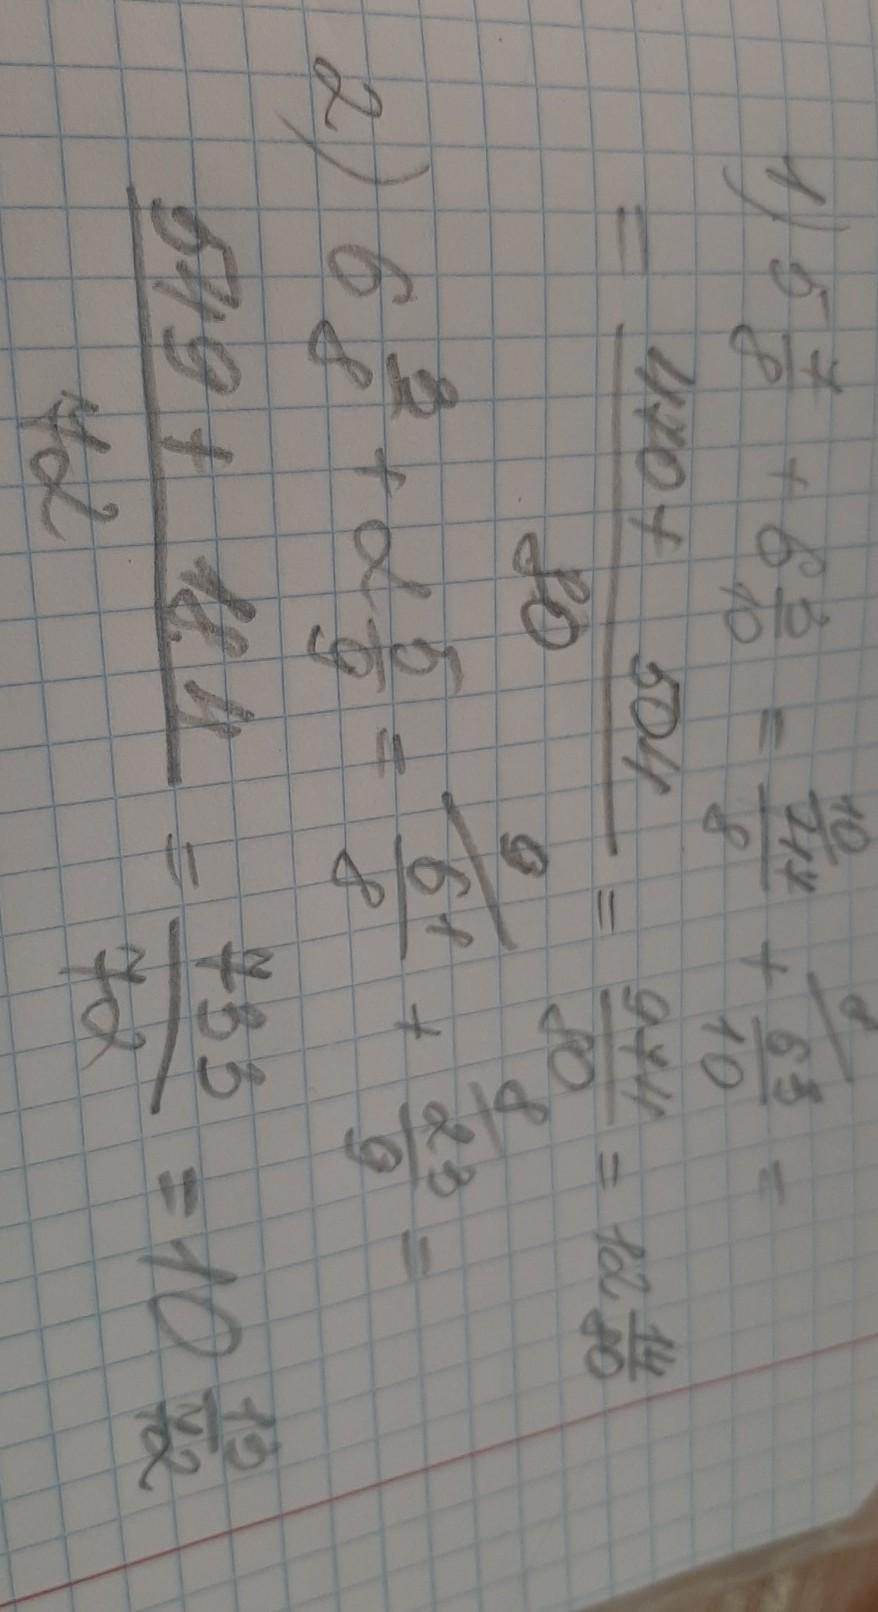 1) 5 7/8 + 6 3/10 = 47/8 (10 + 63/10 (8 =
= 470 + 504 / 80 = 974/80 = 12 14/80
2) 6 3/8 + 2 5/9 = 61/8 (9 + 23/9 (8 =
549 + 184 / 72 = 733/72 = 10 13/72